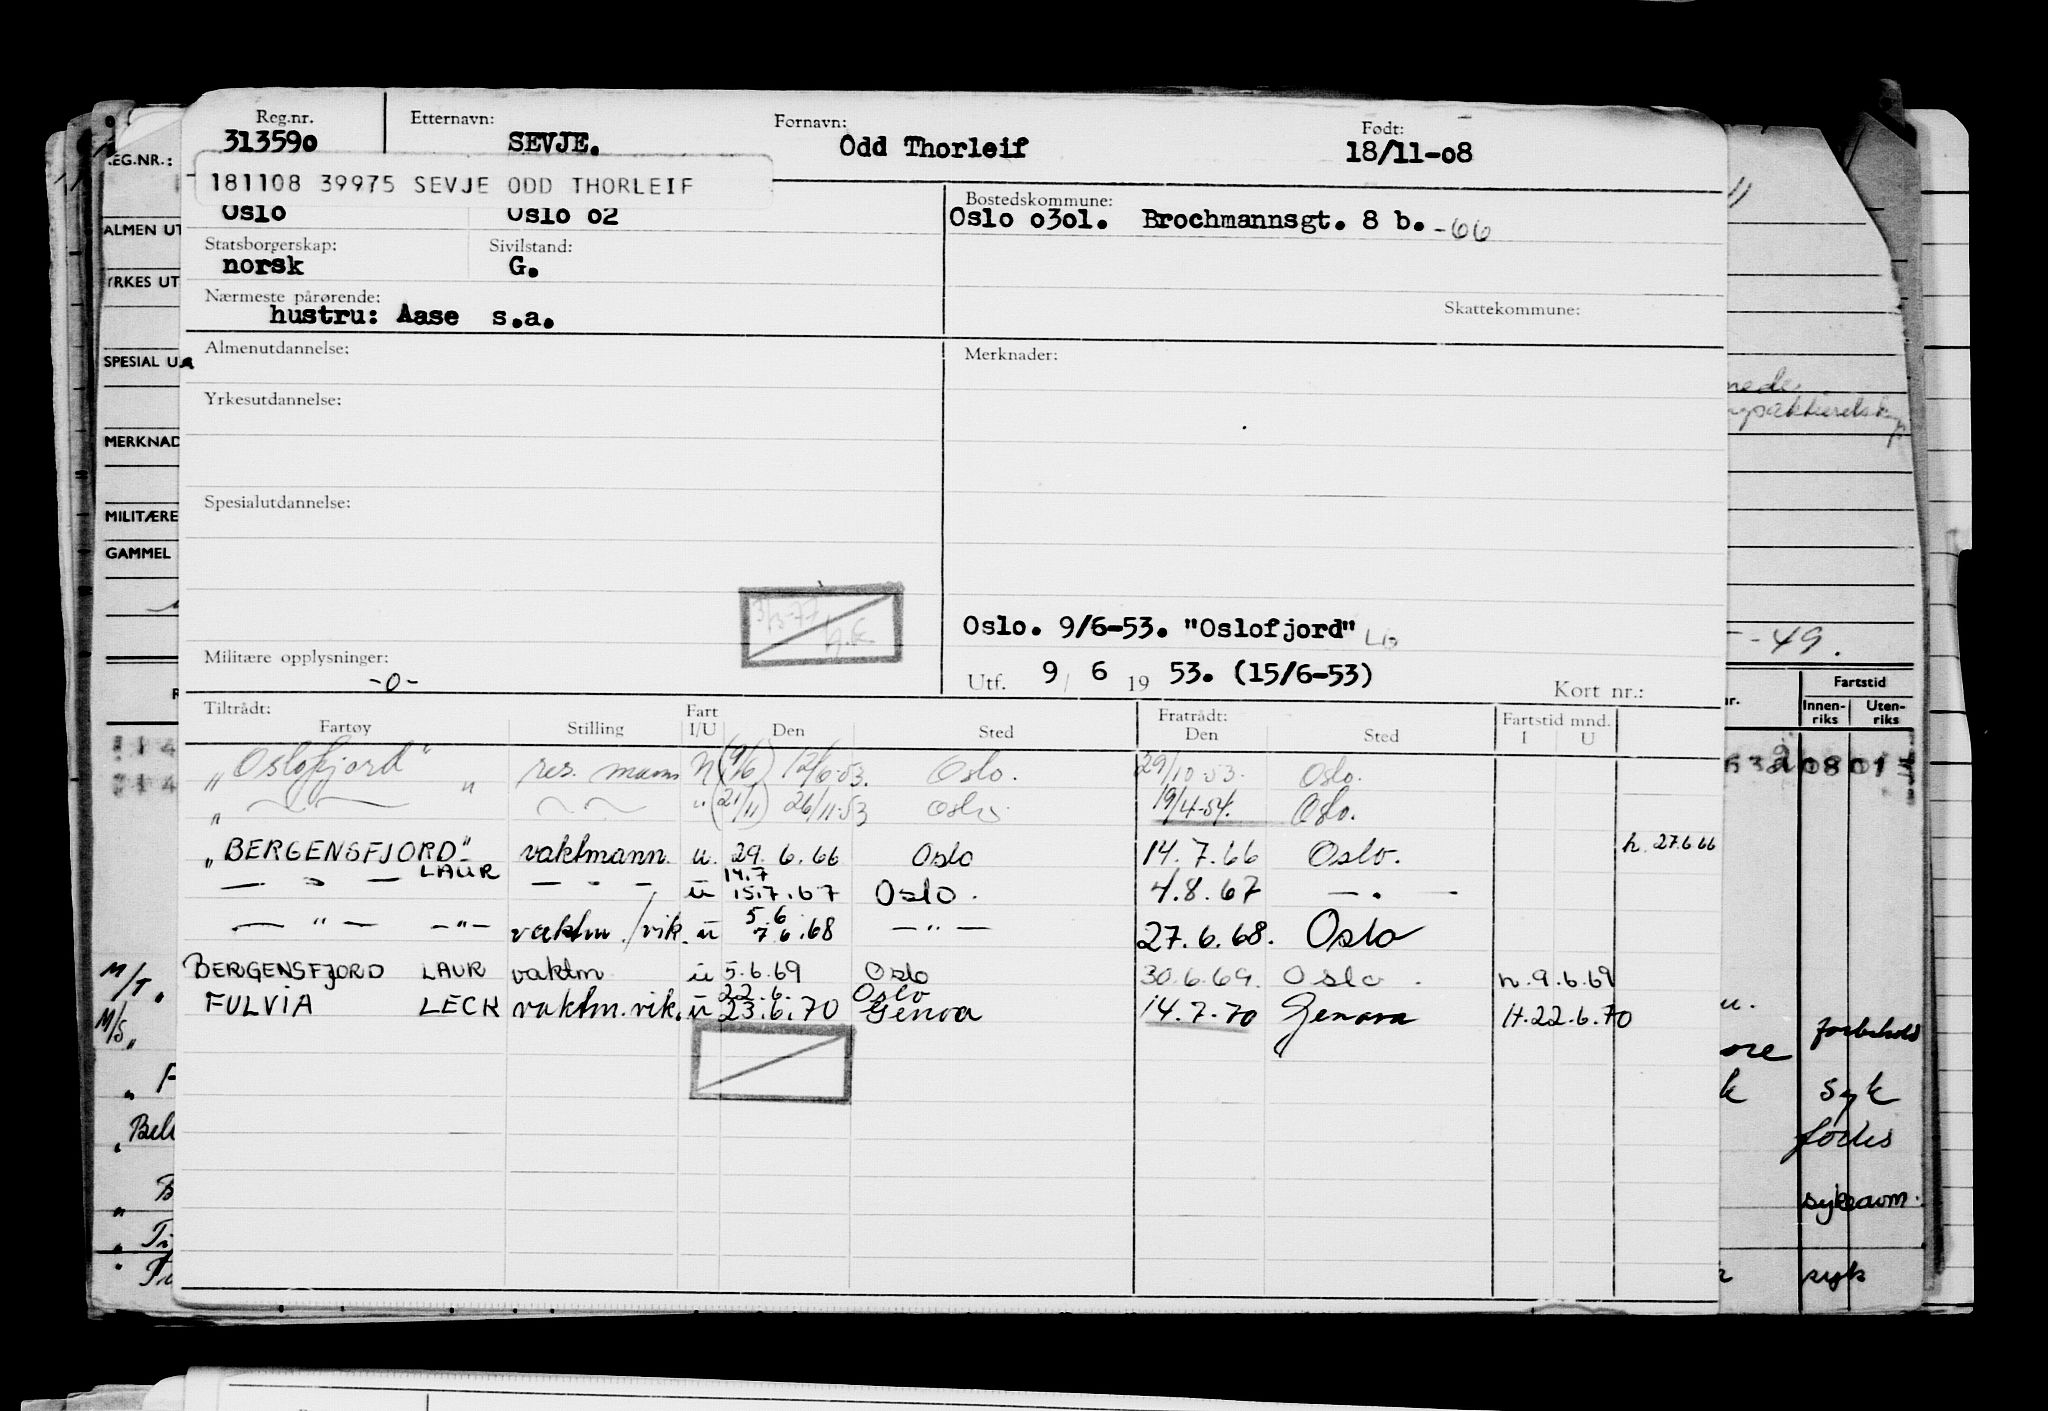 Reg.nr. Etternavn: Fornavn: Født:
313590 SEVJE. Odd Thorleif 18/11-08
181108 39975 SEVJE ODD THORLEIF
Bostedskommune:
Oslo Oslo 02 Oslo 0301. Brochmannsgt. 8 b. -66
Statsborgerskap: Sivilstand:
norsk G.
Nærmeste pårørende: Skattekommune:
hustru: Aase s.a.
Almenutdannelse: Merknader:
Yrkesutdannelse:
Spesialutdannelse:
Oslo. 9/6-53. "Oslofjord"
Militære opplysninger:
-0-
Utf. 9/ 6 19 53. (15/6-53) Kort nr.:
Tiltrådt: Fart Fratrådt: Fartstid mnd.
Fartøy Stilling I/U Den Sted Den Sted I U
"Oslofjord" res. mann (9/6) 12/6-53. Oslo. 29/10-53. Oslo.
" " (21/11) 26/11-53 Oslo 19/4-54. Oslo.
"BERGENSFJORD" vaktmann u. 29.6.66 Oslo 14.7.66 Oslo. h. 27.6 66
— " — LAUR — " — u 14.7 15.7.67 Oslo. 4.8.67 — " —
— " — — " — vaktm./vik. u 5.6 7.6.68 — " — 27.6.68. Oslo
M/T "BERGENSFJORD LAUR vaktm u 5.6.69 Oslo 30.6.69. Oslo. h. 9.6.69
M/S " FULVIA LECK vaktm.vik. u 22.6. 23.6.70 Oslo Genova 14.7.70 Genova H.22.6.70
REG.NR.:
ALMEN UT
YRKES UT
SPESIAL U
MERKNAD
MILITÆRE
GAMMEL
-49.
Fartstid
Innen-riks Uten-riks
syk
syk